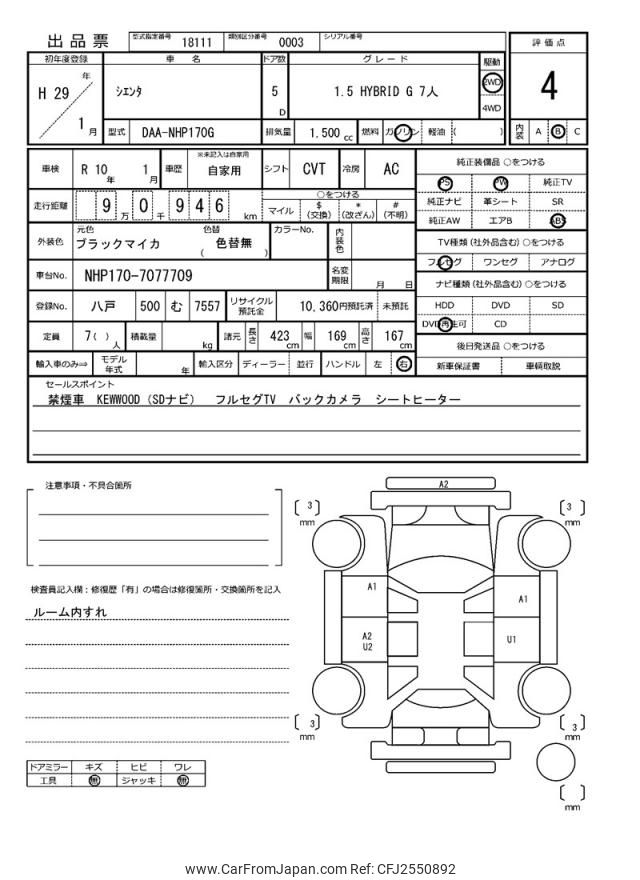 出品票 型式指定番号 18111 類別区分番号 0003 シリアル番号
評価点
4
内装 A B C
初年度登録 車名 ドア数 グレード 駆動
H 29 年 1 月 シエンタ 5 D 1.5 HYBRID G 7人 2WD 4WD
型式 DAA-NHP170G 排気量 1.500 cc 燃料 ガソリン 軽油 ( )
車検 R 10 年 1 月 車歴 ※未記入は自家用 自家用 シフト CVT 冷房 AC
走行距離 9 万 0 千 9 4 6 km ○をつける
マイル $(交換) *(改ざん) #(不明)
外装色 元色 ブラックマイカ 色替 ( 色替無 ) カラーNo. 内装色
車台No. NHP170-7077709 名変期限 月 日
登録No. 八戸 500 む 7557 リサイクル預託金 10,360円預託済 未預託
定員 7( ) 人 積載量 kg 諸元 長さ 423 cm 幅 169 cm 高さ 167 cm
輸入車のみ⇒ モデル年式 年 輸入区分 ディーラー 並行 ハンドル 左 右
純正装備品 ○をつける
PS PW 純正TV
純正ナビ 革シート SR
純正AW エアB ABS
TV種類 (社外品含む) ○をつける
フルセグ ワンセグ アナログ
ナビ種類 (社外品含む) ○をつける
HDD DVD SD
DVD再生可 CD
後日発送品 ○をつける
新車保証書 車輌取説
セールスポイント
禁煙車 KEWWOOD (SDナビ) フルセグTV バックカメラ シートヒーター
注意事項・不具合箇所
検査員記入欄:修復歴「有」の場合は修復箇所・交換箇所を記入
ルーム内すれ
ドアミラー キズ ヒビ ワレ
工具 無 ジャッキ 無
A2
3 mm
3 mm
A1
A1
A2
U2
U1
3 mm
3 mm
mm
www.CarFromJapan.com Ref: CFJ2550892